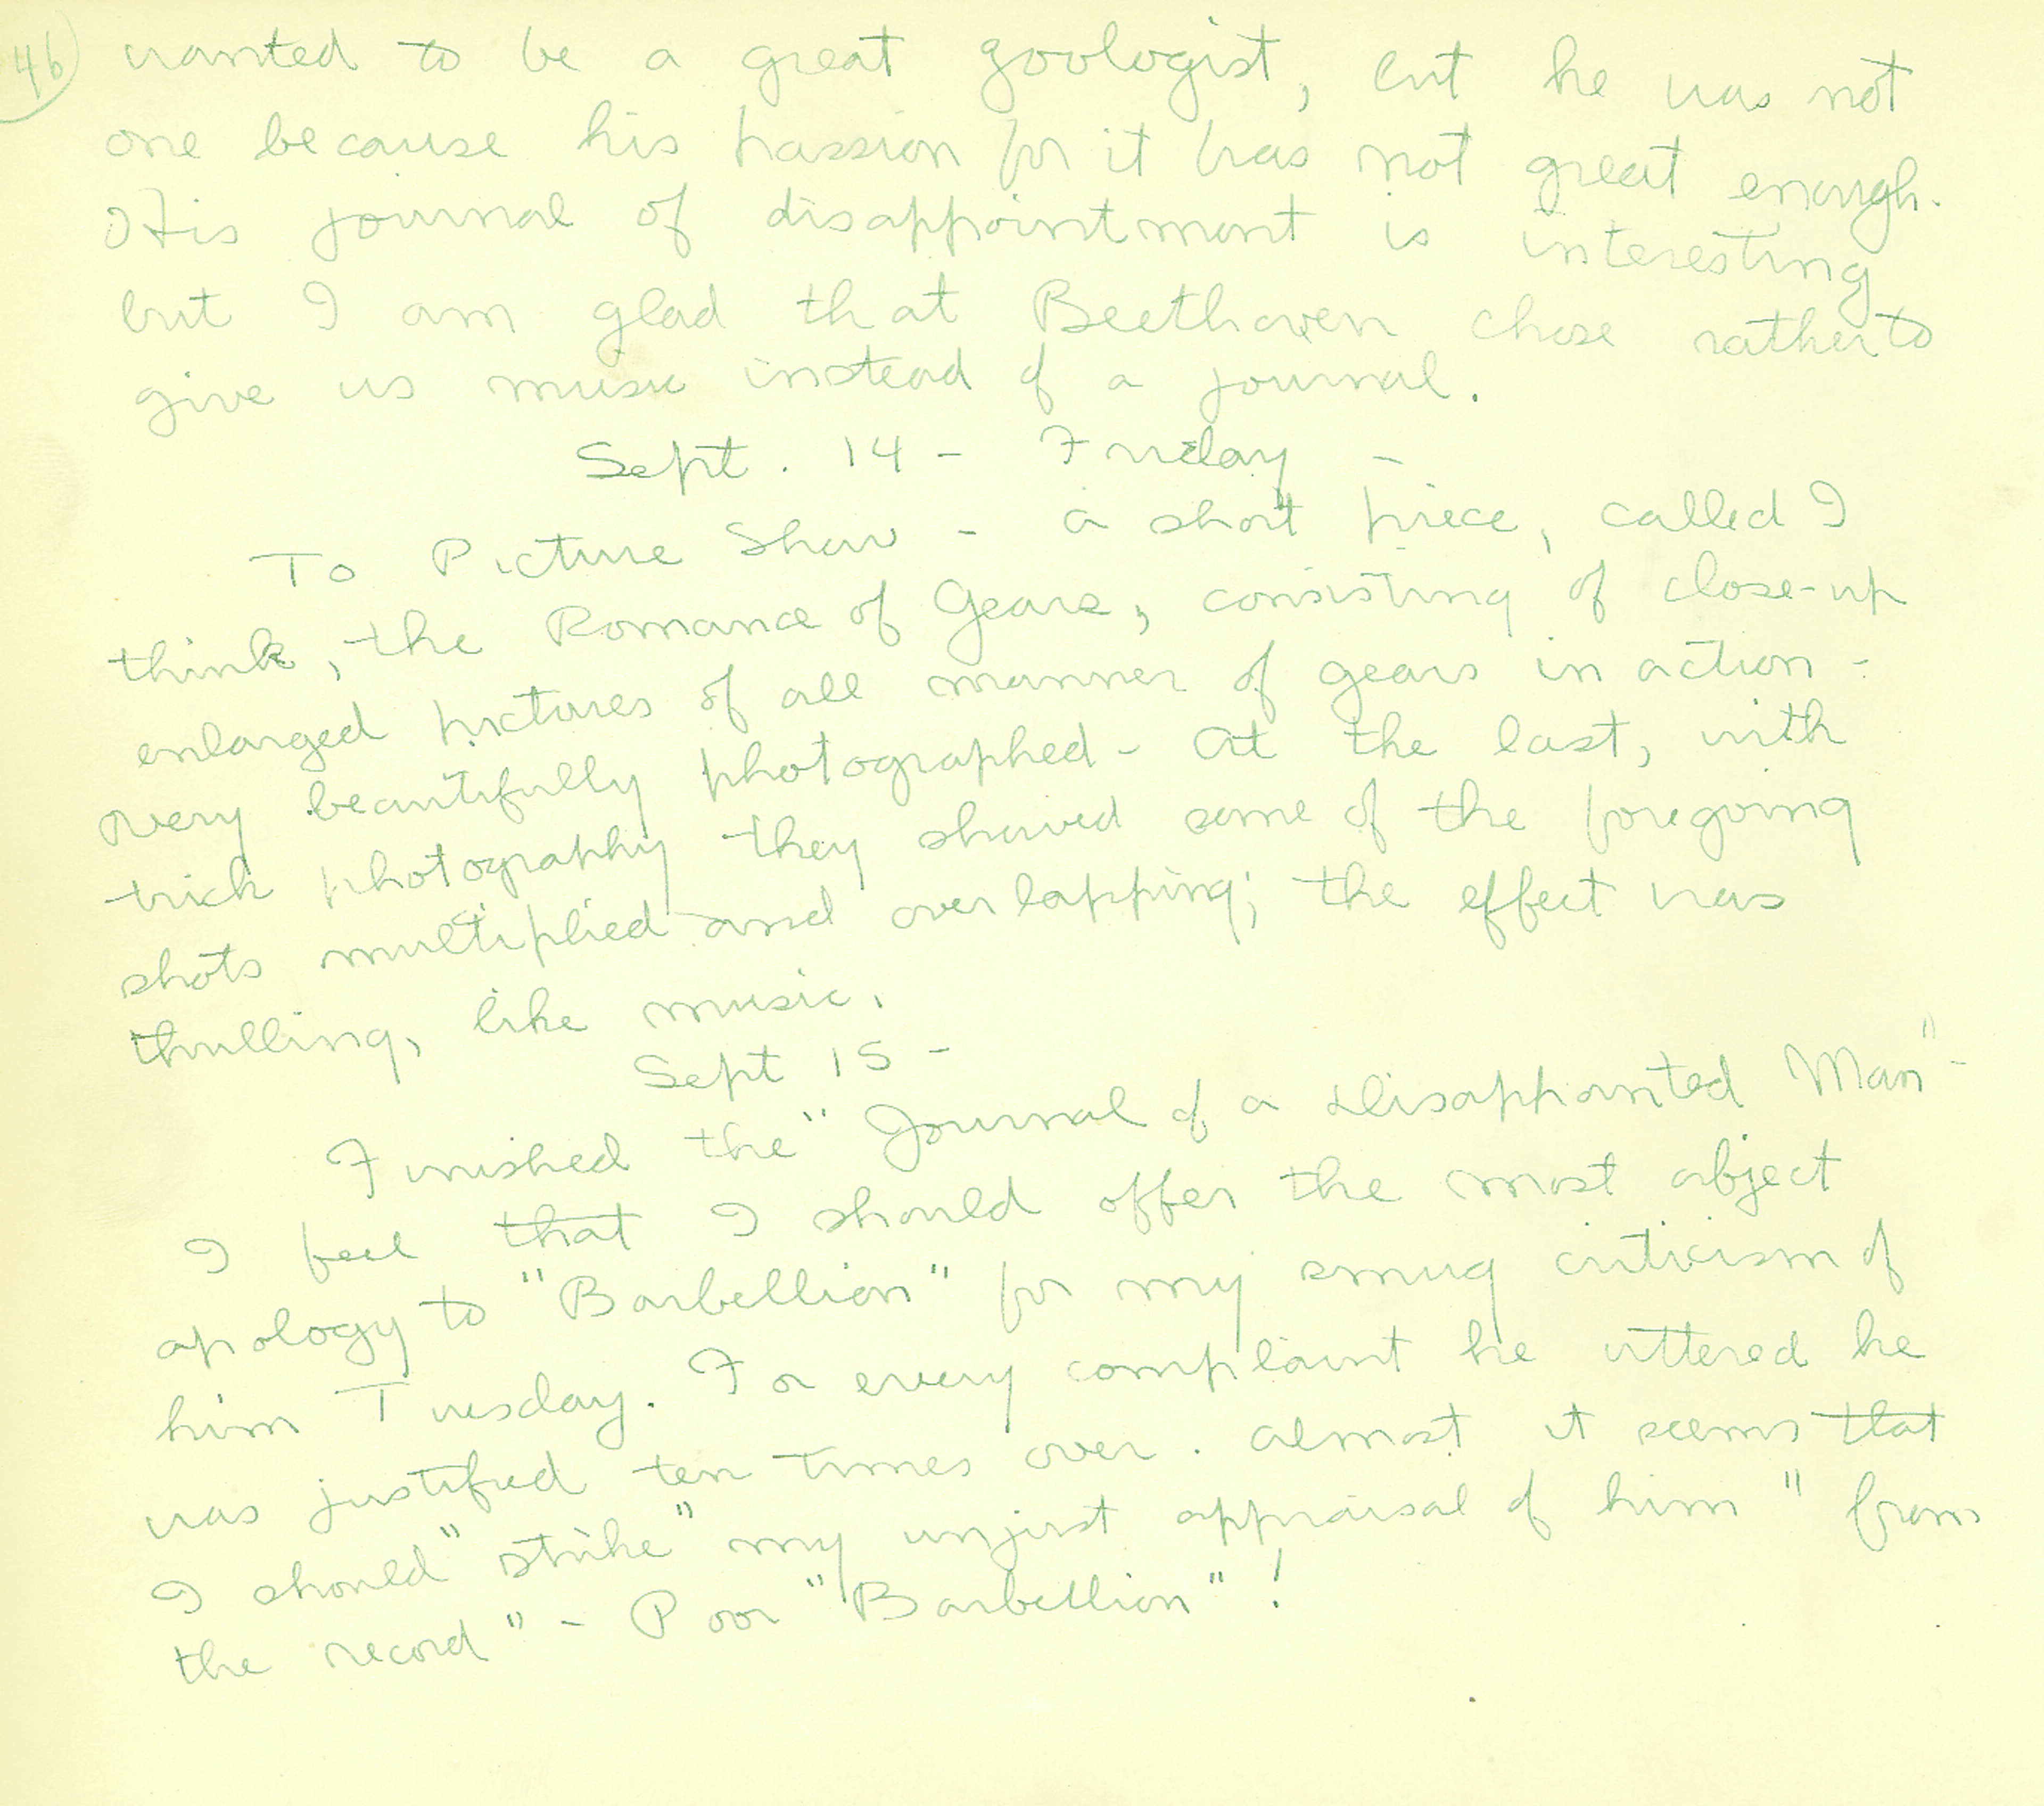 46
wanted to be a great zoologist, but he was not
one because his passion for it was not great enough.
His journal of disappointment is interesting
but I am glad that Beethoven chose rather to
give us music instead of a journal.
Sept. 14 - Friday -
To Picture Show - a short piece, called I
think, the Romance of Gears, consisting of close-up
enlarged pictures of all manner of gears in action -
very beautifully photographed - At the last, with
trick photography they showed some of the foregoing
shots multiplied and overlapping; the effect was
thrilling, like music.
Sept 15 -
Finished the "Journal of a Disappointed Man" -
I feel that I should offer the most abject
apology to "Barbellion" for my smug criticism of
him Tuesday. For every complaint he uttered he
was justified ten times over. Almost it seems that
I should "strike" my unjust appraisal of him "from
the record" - Poor "Barbellion"!